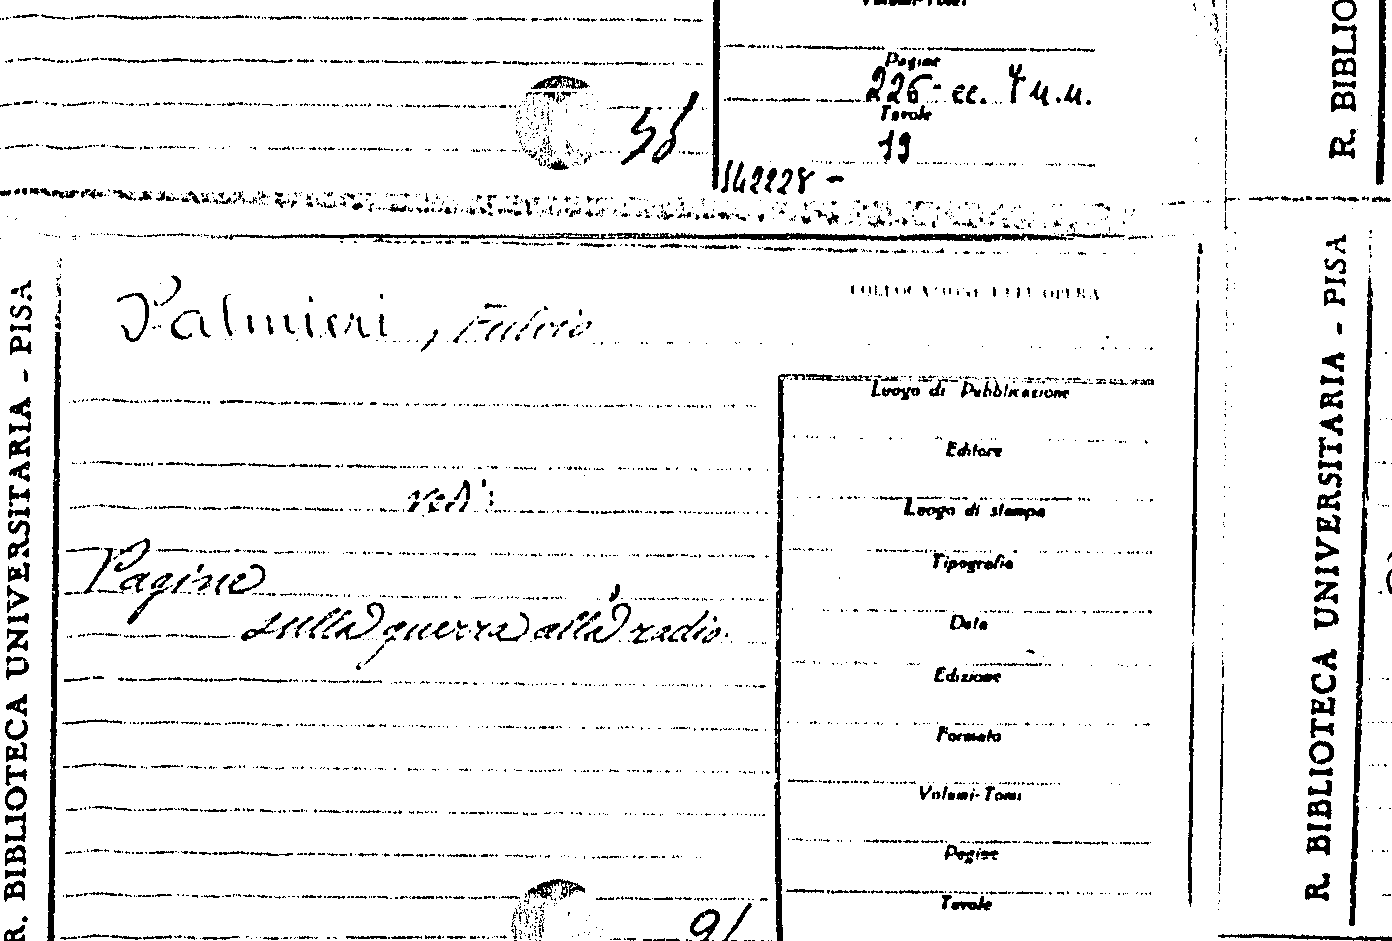 Volumi-Tomi
Pagine
226- cc. 4 n.n.
Tavole
19
142228 -
R. BIBLIO
R. BIBLIOTECA UNIVERSITARIA - PISA
COLLOCAZIONE DELL'OPERA
Palmieri, Fulvio
Luogo di Pubblicazione
Editore
vedi:
Luogo di stampa
Pagine
Tipografia
sulla guerra alla radio
Data
Edizione
Formato
Volumi-Tomi
Pagine
Tavole
91
R. BIBLIOTECA UNIVERSITARIA - PISA